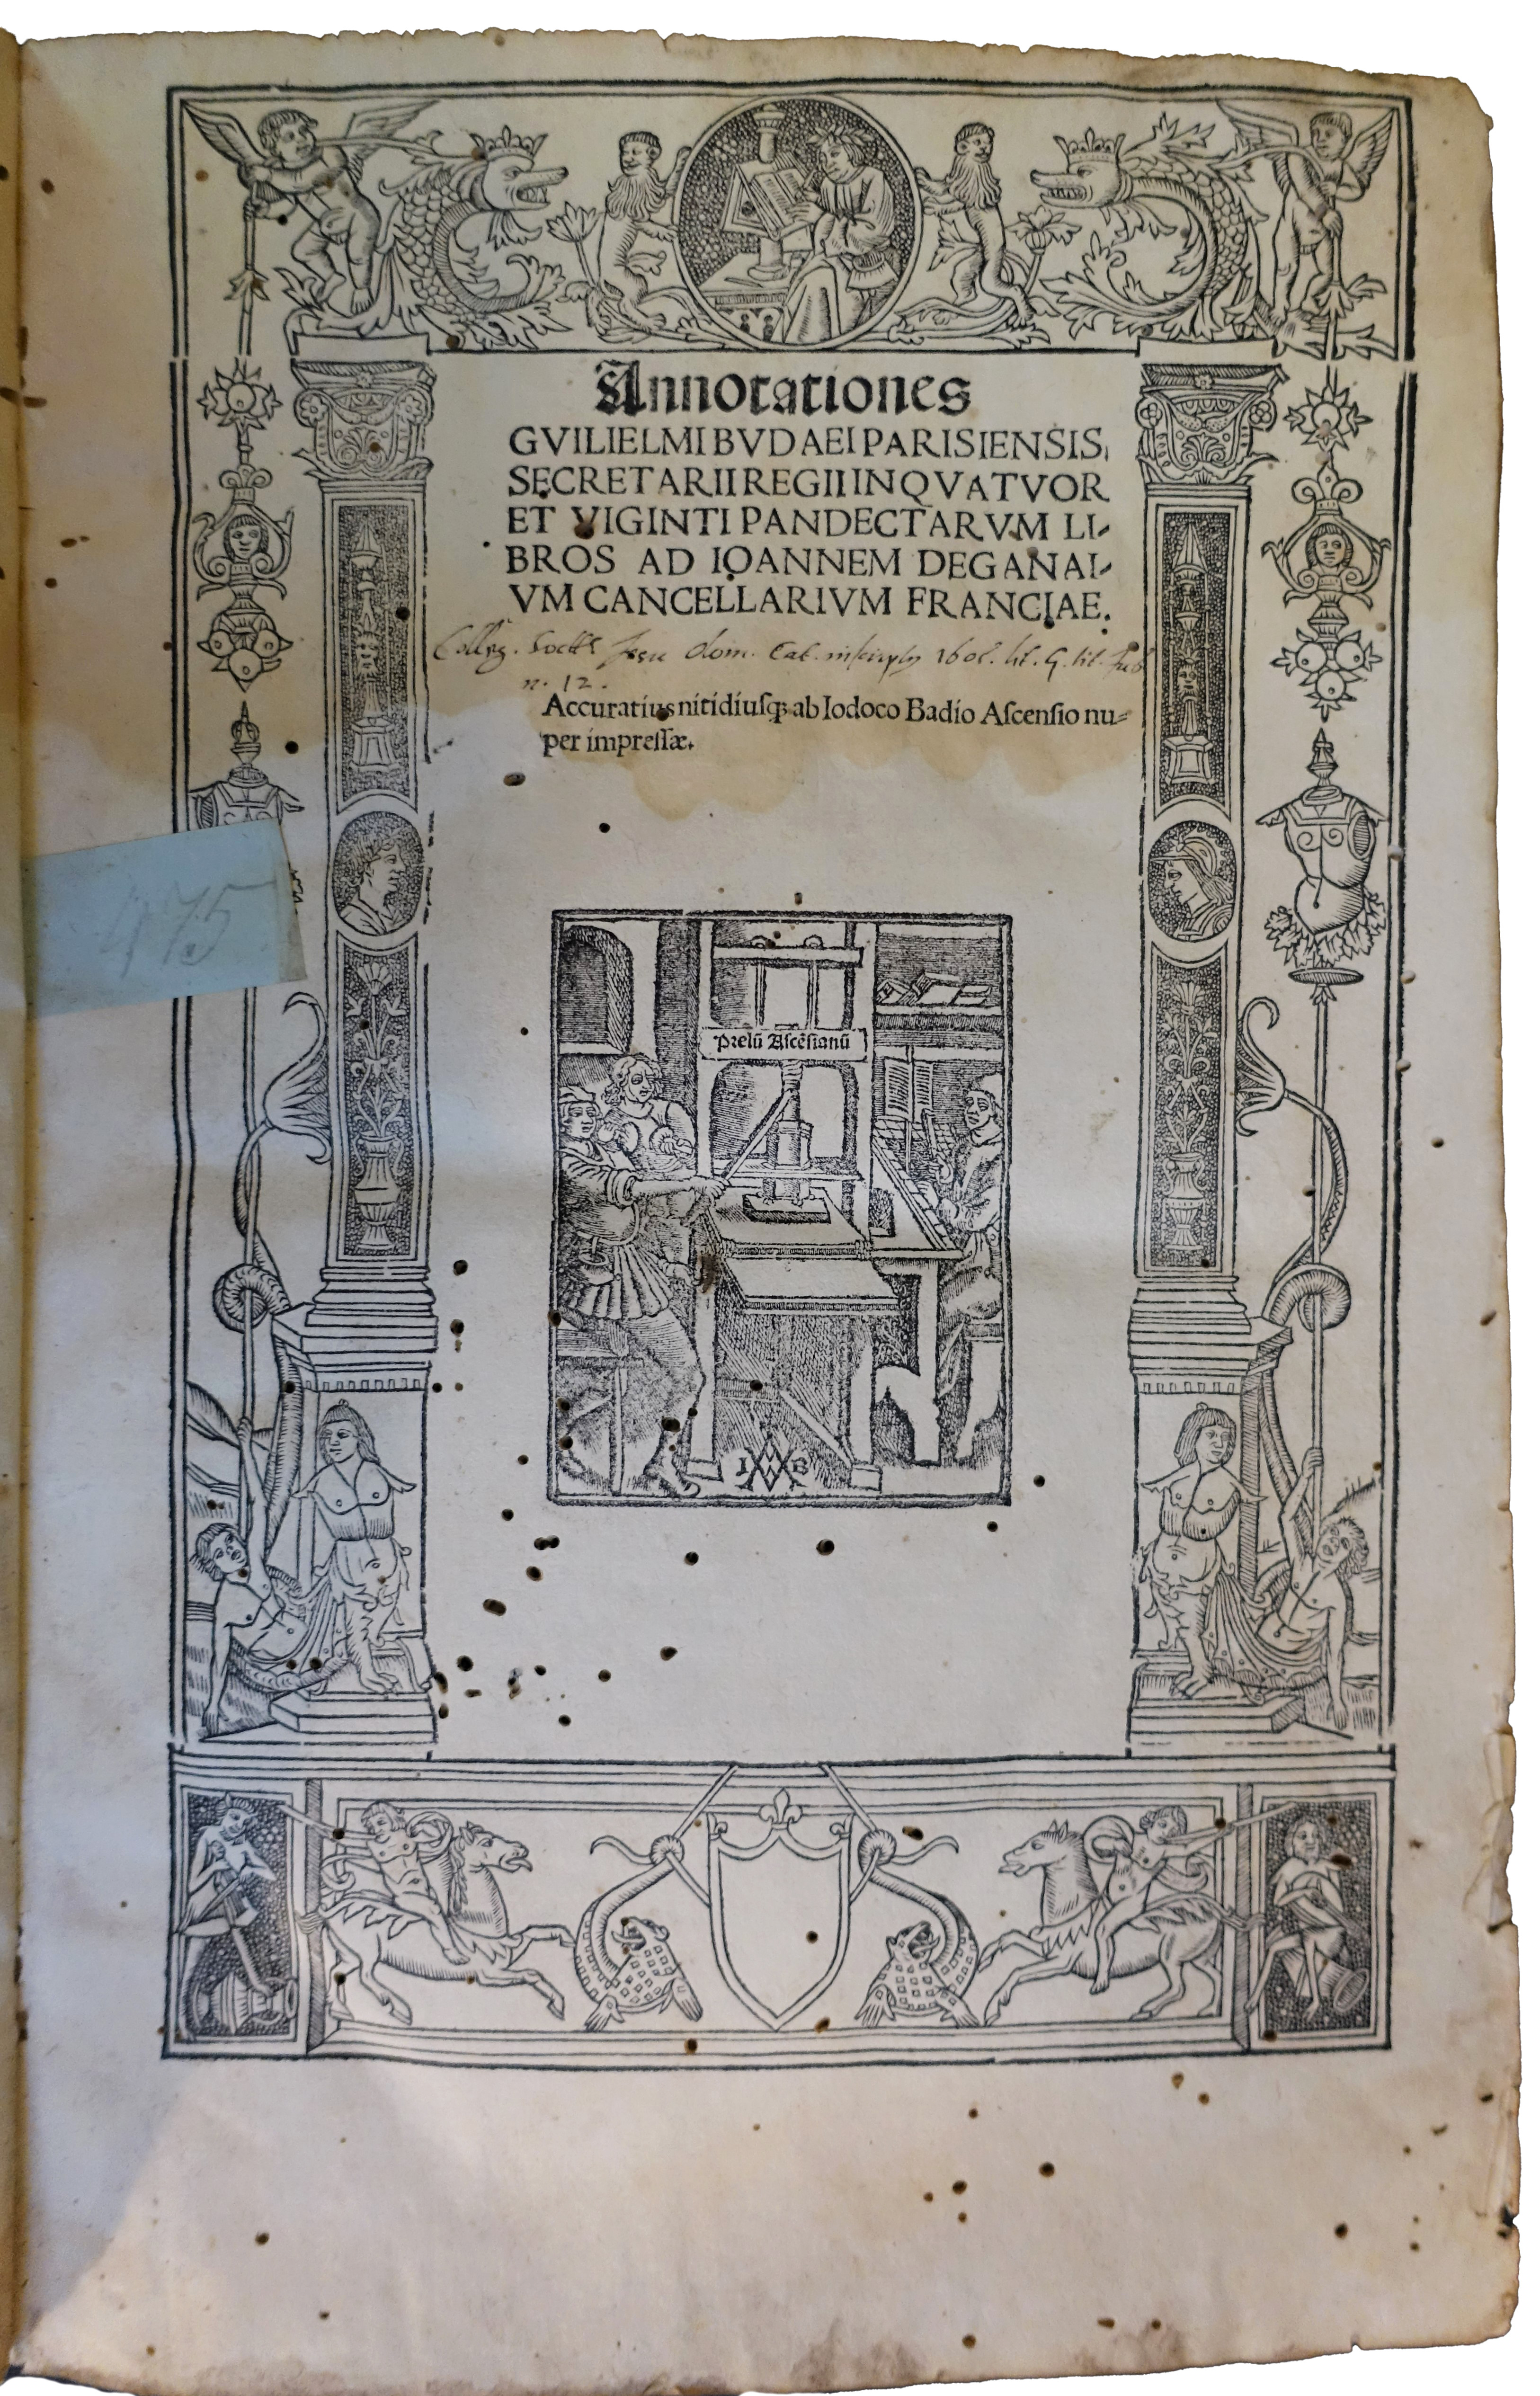 Annotationes
GVILIELMI BVDAEI PARISIENSIS,
SECRETARII REGII IN QVATVOR
ET VIGINTI PANDECTARVM LI-
BROS AD IOANNEM DEGANAI-
VM CANCELLARIVM FRANCIAE.
Colleg. Soctis Jesu dom. Cat. inscriptg lit. G. tit.
n. 12.
Accuratius nitidiusqꝫ ab Iodoco Badio Aſcenſio nu=
per impreſſæ.
475
Prelū Aſcēſianū
I B